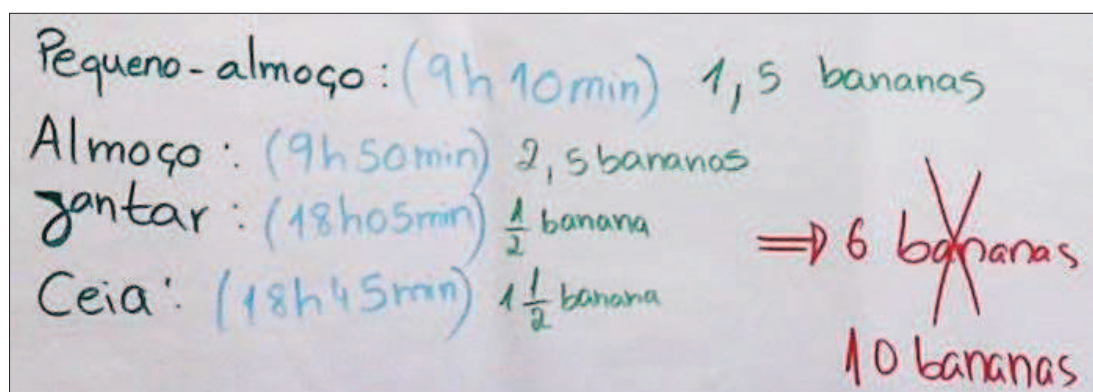 Pequeno-almoço: (9h 10min) 1,5 bananas
Almoço: (9h50min) 2,5 bananas
Jantar: (18h05min) 1/2 banana
Ceia: (18h45min) 1 1/2 banana
⇒ 6 bananas
10 bananas